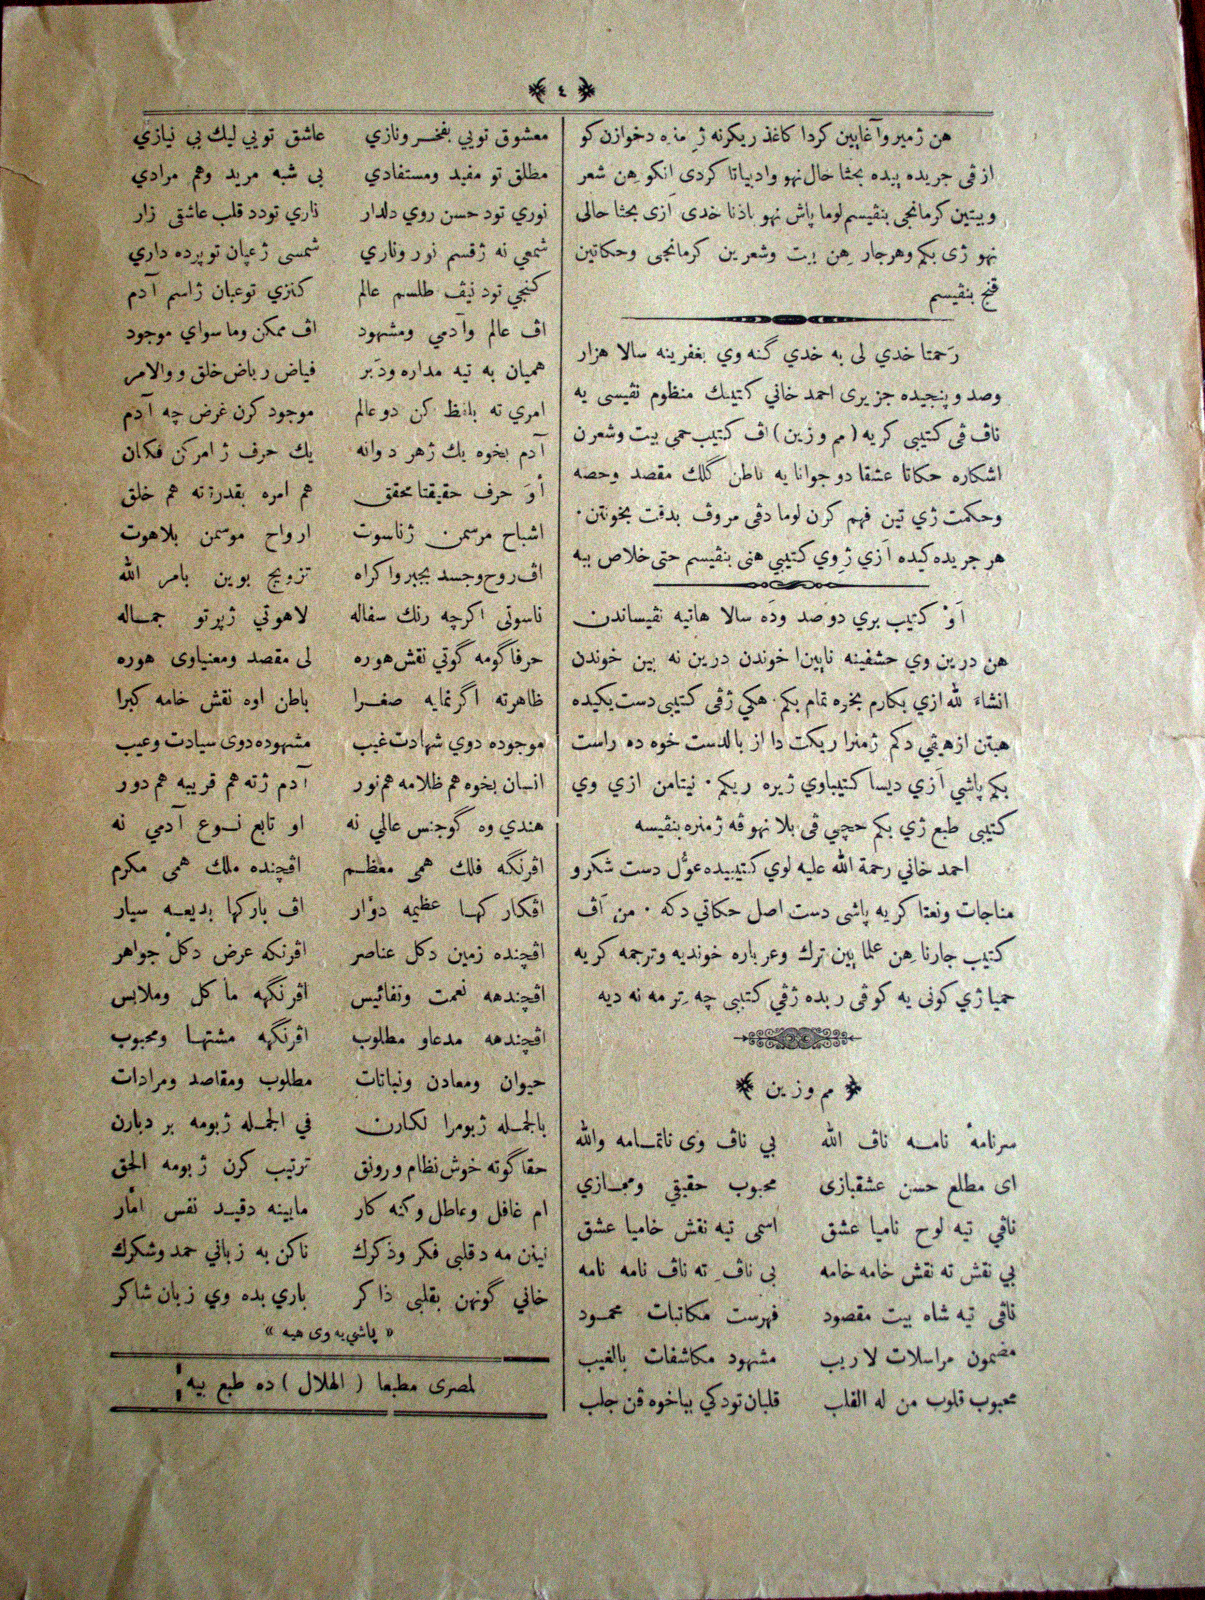 ٤
هن ژ میر و آغایین کردا کاغذ ریکرنه ژ مه‌ دخوازن کو
از ڤی جریده ییده بحثا حال نهو وادبیاتا کردی آنکو هن شعر
و بیتین کرمانجی بنڤیسم لوما پاش نهو باذنا خدی آزی بحثا حالی
نهو ژی بکم وهرجار هن بیت وشعرین کرمانجی وحکاتین
قنج بنڤیسم
رحمتا خدي لی به خدي گنه وي بغفرینه سالا هزار
وصد و پنجیده جزیری احمد خاني کتیبك منظوم نڤیسی یه
ناڤ ڤی کتیبی کریه ( مم و زین ) اڤ کتیب حمی بیت وشعرن
اشکاره حکاتا عشقا دو جوانا یه باطن گلك مقصد وحصه
وحکمت ژي تین فهم کرن لوما دڤی مروڤ بدقت بخونتن.
هر جریده کیده آزي ژ وي کتیبي هنی بنڤیسم حتی خلاص ببه
أو کتیب بري دوصد وده سالا هاتیه نڤیساندن
هن درین وي حشفینه نایین خوندن درین نه یین خوندن
انشاء لله ازي بکارم بخوه تمام بکم. هکي ژ ڤی کتیبی دست یکیده
هبتن از هیڤي دکم ژ منرا ریکت دا از بالدست خوه ده راست
بکم پاشي آزي دیسا کتیباوي ژیره ریکم. نیتامن ازي وي
کتیبی طبع ژي بکم حچي ڤی بلا نهوڤه ژ منره بنڤیسه
احمد خاني رحمة الله علیه لوي کتیبیده عوّل دست شکر و
مناجات ونعتا کریه پاشی دست اصل حکاتي دکه. من أڤ
کتیب جارنا هن علمایین ترك وعرباره خوندیه وترجمه کریه
حمیا ژي کوتی یه کو ڤی ربده ژ ڤي کتیبی چه تر مه نه دیه
مم و زین
سرنامهٔ نامه ناڤ الله    بي ناڤ وی ناتمامه والله
ای مطلع حسن عشقبازی    محبوب حقیقي ومجازي
ناڤي تیه لوح نامیا عشق    اسمی تیه نقش خامیا عشق
بي نقش ته نقش خامه خامه    بی ناڤ ته ناڤ نامه نامه
ناڤی تیه شاه بیت مقصود    فهرست مکاتبات محمود
مضمون مراسلات لاریب    مشهود مکاشفات بالغیب
محبوب قلوب من له القلب    قلبان تو دکي بباخوه ڤن جلب
معشوق تویي بفخر ونازي    عاشق تویي لیك بی نیازي
مطلق تو مفید ومستفادي    بی شبه مرید وهم مرادي
نوري تو د حسن روي دلدار    ناري تو د قلب عاشقی زار
شمعي نه ژ قسم نور وناري    شمسی ژ عیان تو پرده داري
کنجي تو د نیڤ طلسم عالم    کنزي تو عیان ژ اسم آدم
اڤ عالم وآدمي ومشهود    اڤ ممکن وما سواي موجود
همیان به تیه مداره ودبر    فیاض ریاض خلق و والامر
امري ته بلفظ کن دو عالم    موجود کرن غرض چه آدم
آدم بخوه یك ژ هر دوانه    یك حرف ژ امر کن فکان
أو حرف حقیقتا محقق    هم امره بقدرة ته هم خلق
اشباح مرسمن ژ ناسوت    ارواح موسمن بلاهوت
اڤ روح وجسد بجبر واکراه    تزویج بوین بامر الله
ناسوتی اکرچه رنك سفاله    لاهوتي ژ پرتو جماله
حرفا گومه گوتي نقش هوره    لی مقصد ومعنیاوی هوره
ظاهرته اگر نمایه صغرا    باطن اوه نقش خامه کبرا
موجوده دوي شهادت غیب    مشهوده دوی سیادت وعیب
انسان بخوه هم ظلامه هم نور    آدم ژ ته هم قریبه هم دور
هندي وه گو جنس عالي نه    او تابع نوع آدمي نه
اڤرنگه فلك همی معظم    اڤچنده ملك همی مکرم
اڤکار کها عظیمه دوّار    اڤ بارکها بدیعه سیار
اڤچنده زمین دکل عناصر    اڤرنکه عرض دکل جواهر
اڤچندهه نعمت ونفائیس    اڤرنگهه ما کل وملابس
اڤچندهه مدعاو مطلوب    اڤرنگهه مشتها ومحبوب
حیوان ومعادن ونباتات    مطلوب ومقاصد ومرادات
بالجمله ژ بومرا لکارن    في الجمله ژ بومه بر دبارن
حقا گو ته خوش نظام و رونق    ترتیب کرن ژ بومه الحق
ام غافل وعاطل وکنه کار    ماینه دقید نفس امّار
نینن مه د قلبی فکر وذکرك    ناکن به زبانی حمد وشکرك
خاني گو نهن بقلبی ذاکر    باري بده وي زبان شاکر
« پاشي به وی هیه »
لمصری مطبعا ( الهلال ) ده طبع بیه